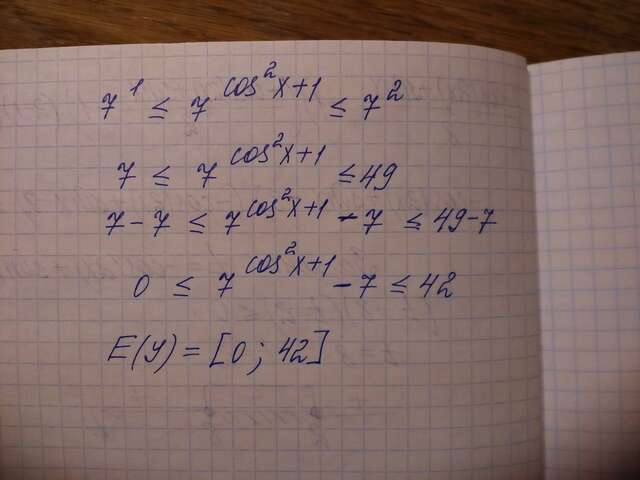 7¹ ≤ 7^(cos²x+1) ≤ 7²
7 ≤ 7^(cos²x+1) ≤ 49
7 - 7 ≤ 7^(cos²x+1) - 7 ≤ 49-7
0 ≤ 7^(cos²x+1) - 7 ≤ 42
E(y) = [0; 42]